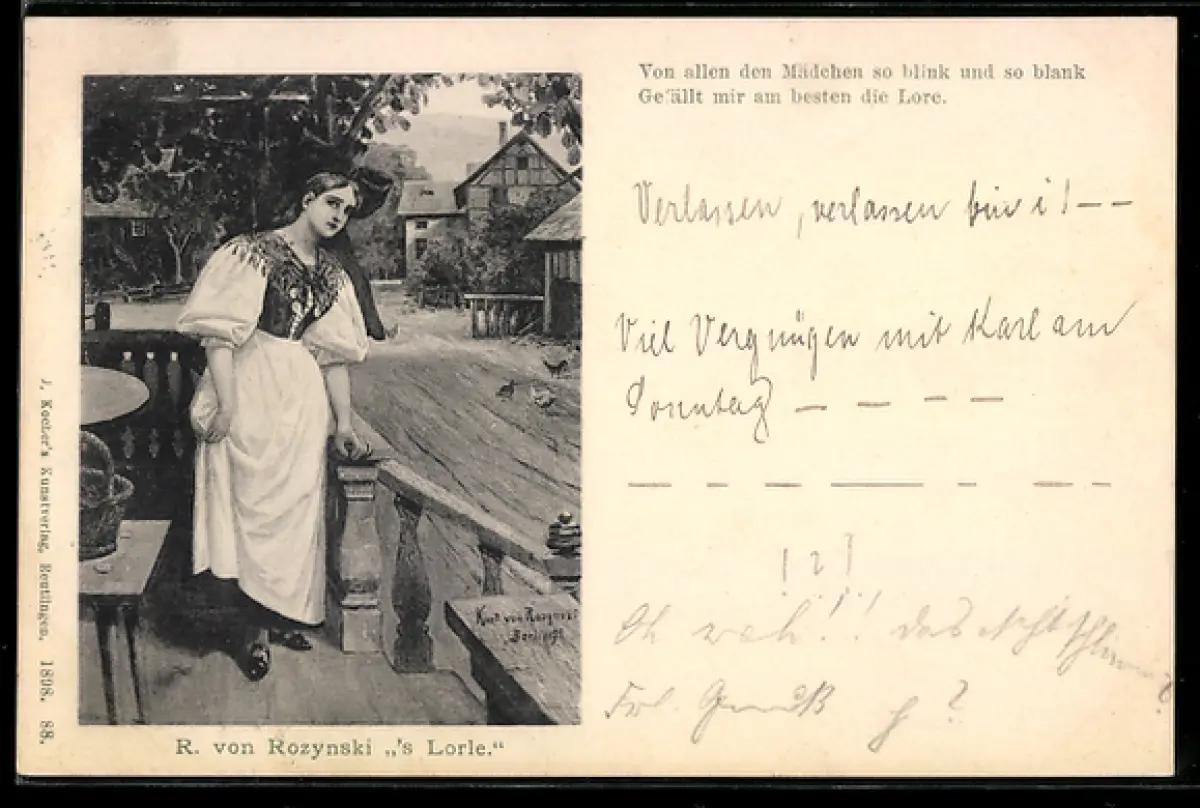 Von allen den Mädchen so blink und so blank
Gefällt mir am besten die Lore.
Verlassen, verlassen bin i! – –
Viel Vergnügen mit Karl am
Sonntag – – – –
Oh weh!! das
Frl.
?
J. Kocher's Kunstverlag, Reutlingen. 1898. 88.
R. von Rozynski „'s Lorle."
Kurt von Rozynski